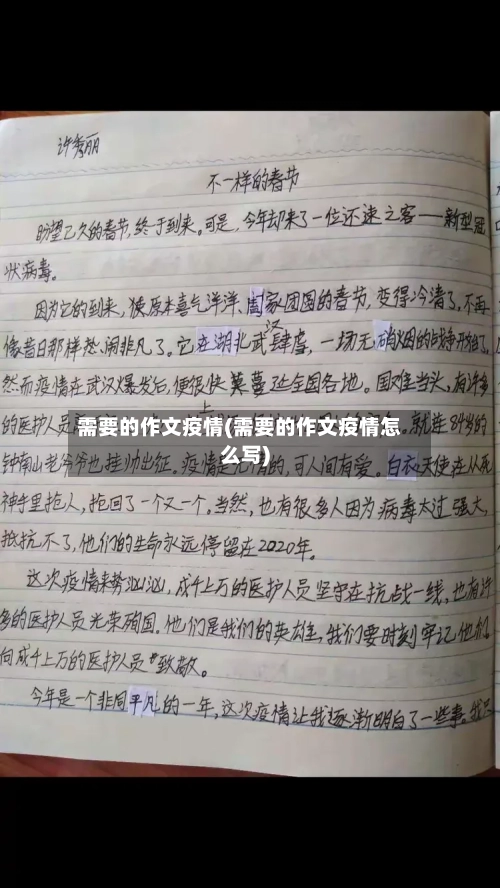 许秀丽
不一样的春节
盼望已久的春节,终于到来。可是,今年却来了一位还速之客——新型冠
状病毒。
因为它的到来,使原本喜气洋洋、阖家团圆的春节,变得冷清了,不再
像昔日那样热闹非凡了。它在湖北武汉肆虐,一场无硝烟的战争开始了。
然而疫情在武汉爆发后,便很快蔓延全国各地。国难当头,有许多
的医护人员
需要的作文疫情(需要的作文疫情怎
么写)
就连84岁的
钟南山老爷爷也挂帅出征。疫情是无情的,可人间有爱。白衣天使在从死
神手里抢人,抢回了一个又一个。当然,也有很多人因为病毒太过强大,
抵抗不了,他们的生命永远停留在2020年。
这次疫情来势汹汹,成千上万的医护人员坚守在抗战一线,也有许
多的医护人员光荣殉国。他们是我们的英雄,我们要时刻牢记他们,
向成千上万的医护人员致敬。
今年是一个非同平凡的一年,这次疫情让我逐渐明白了一些事。我